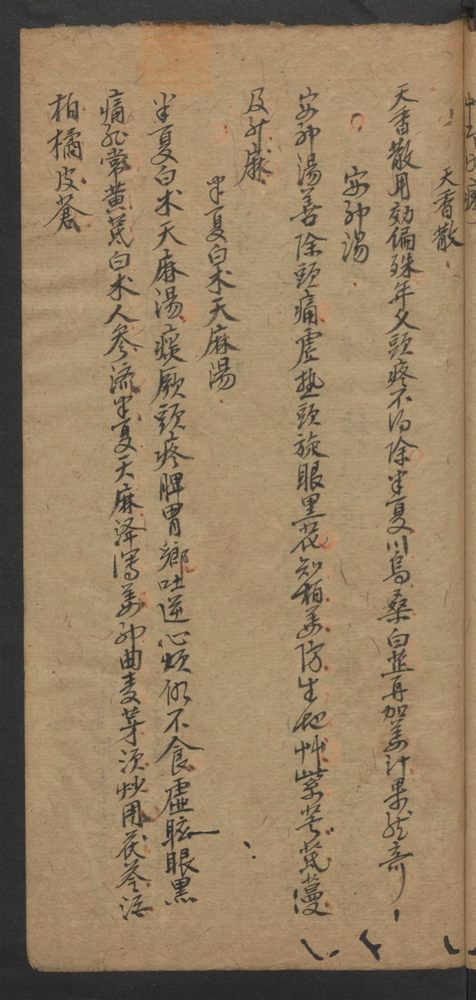 天香散
天香散用効偏殊年久頭疼不得除半夏川烏桑白芷再加姜汁果然奇
安神湯
安神湯善除頭痛虚熱頭旋眼黒花知栢羌防生地艸柴芎芪蔓
及升麻
半夏白术天麻湯
半夏白术天麻湯痰厥頭疼脾胃鄉吐逆心煩仍不食虚眩眼黒
痛非常黄芪白术人參流半夏天麻澤瀉姜神曲麦芽須炒用茯苓
栢橘皮蒼